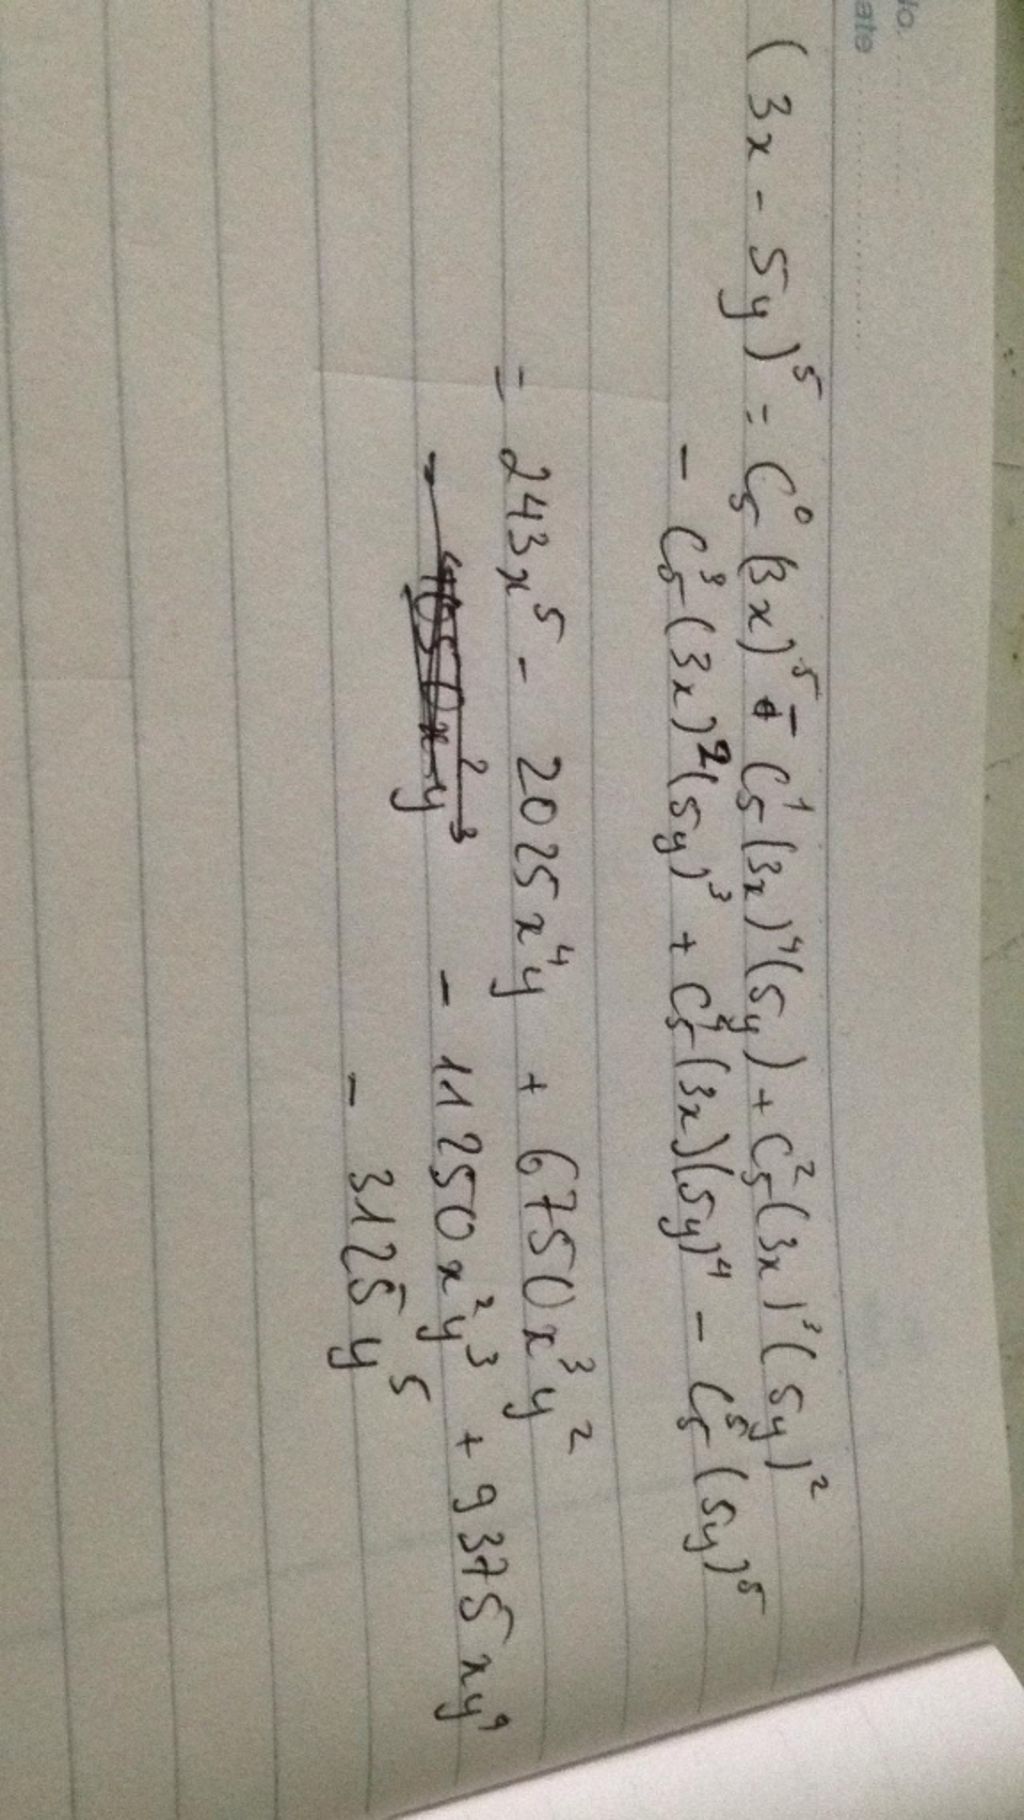 No.
ate
(3x - 5y)⁵ = C₅⁰(3x)⁵ - C₅¹(3x)⁴(5y) + C₅²(3x)³(5y)²
- C₅³(3x)²(5y)³ + C₅⁴(3x)(5y)⁴ - C₅⁵(5y)⁵
= 243x⁵ - 2025x⁴y + 6750x³y²
- 11250x²y³ + 9375xy⁴
- 3125y⁵